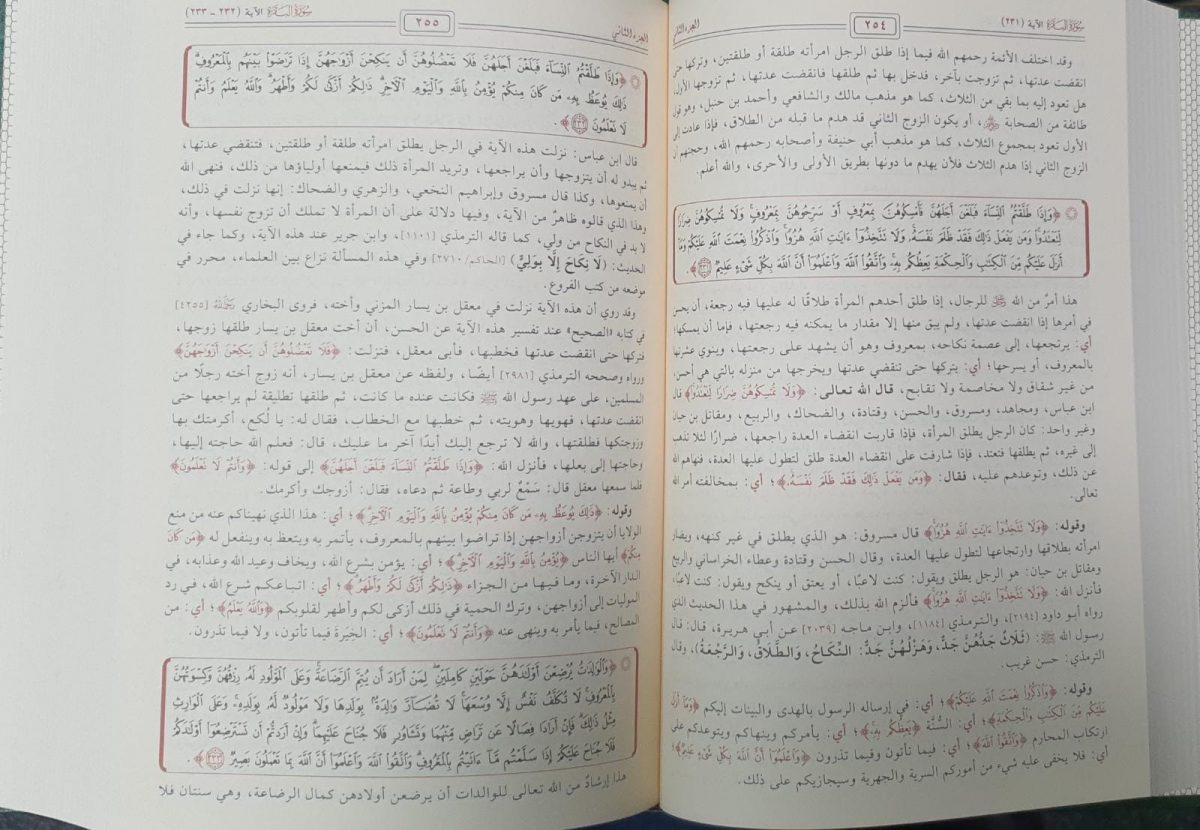 سورة البقرة الآية (٢٣١)
٢٥٤
الجزء الثاني
وقد اختلف الأئمة رحمهم الله فيما إذا طلق الرجل امرأته طلقة أو طلقتين، وتركها حتى
انقضت عدتها، ثم تزوجت بآخر، فدخل بها ثم طلقها فانقضت عدتها، ثم تزوجها الأول،
هل تعود إليه بما بقي من الثلاث، كما هو مذهب مالك والشافعي وأحمد بن حنبل، وهو قول
طائفة من الصحابة ﷺ، أو يكون الزوج الثاني قد هدم ما قبله من الطلاق، فإذا عادت إلى
الأول تعود بمجموع الثلاث، كما هو مذهب أبي حنيفة وأصحابه رحمهم الله، وحجتهم أن
الزوج الثاني إذا هدم الثلاث فلأن يهدم ما دونها بطريق الأولى والأحرى، والله أعلم.
﴿وَإِذَا طَلَّقْتُمُ النِّسَاءَ فَبَلَغْنَ أَجَلَهُنَّ فَأَمْسِكُوهُنَّ بِمَعْرُوفٍ أَوْ سَرِّحُوهُنَّ بِمَعْرُوفٍ وَلَا تُمْسِكُوهُنَّ ضِرَارًا
لِتَعْتَدُوا وَمَن يَفْعَلْ ذَلِكَ فَقَدْ ظَلَمَ نَفْسَهُ وَلَا تَتَّخِذُوا آيَاتِ اللَّهِ هُزُوًا وَاذْكُرُوا نِعْمَتَ اللَّهِ عَلَيْكُمْ وَمَا
أَنزَلَ عَلَيْكُم مِّنَ الْكِتَابِ وَالْحِكْمَةِ يَعِظُكُم بِهِ وَاتَّقُوا اللَّهَ وَاعْلَمُوا أَنَّ اللَّهَ بِكُلِّ شَيْءٍ عَلِيمٌ (٢٣١)﴾.
هذا أمرٌ من الله ﷻ للرجال، إذا طلق أحدهم المرأة طلاقًا له عليها فيه رجعة، أن يحسن
في أمرها إذا انقضت عدتها، ولم يبق منها إلا مقدار ما يمكنه فيه رجعتها، فإما أن يمسكها؛
أي: يرتجعها، إلى عصمة نكاحه، بمعروف وهو أن يشهد على رجعتها، وينوي عشرتها
بالمعروف، أو يسرحها؛ أي: يتركها حتى تنقضي عدتها ويخرجها من منزله بالتي هي أحسن،
من غير شقاق ولا مخاصمة ولا تقابح، قال الله تعالى: ﴿وَلَا تُمْسِكُوهُنَّ ضِرَارًا لِتَعْتَدُوا﴾ قال
ابن عباس، ومجاهد، ومسروق، والحسن، وقتادة، والضحاك، والربيع، ومقاتل بن حيان
وغير واحد: كان الرجل يطلق المرأة، فإذا قاربت انقضاء العدة راجعها، ضرارًا لئلا تذهب
إلى غيره، ثم يطلقها فتعتد، فإذا شارفت على انقضاء العدة طلق لتطول عليها العدة، فنهاهم الله
عن ذلك، وتوعدهم عليه، فقال: ﴿وَمَن يَفْعَلْ ذَلِكَ فَقَدْ ظَلَمَ نَفْسَهُ﴾؛ أي: بمخالفته أمر الله
تعالى.
وقوله: ﴿وَلَا تَتَّخِذُوا آيَاتِ اللَّهِ هُزُوًا﴾ قال مسروق: هو الذي يطلق في غير كنهه، ويضار
امرأته بطلاقها وارتجاعها لتطول عليها العدة، وقال الحسن وقتادة وعطاء الخراساني والربيع
ومقاتل بن حيان: هو الرجل يطلق ويقول: كنت لاعبًا، أو يعتق أو ينكح ويقول: كنت لاعبًا،
فأنزل الله: ﴿وَلَا تَتَّخِذُوا آيَاتِ اللَّهِ هُزُوًا﴾ فألزم الله بذلك، والمشهور في هذا الحديث الذي
رواه أبو داود [٢١٩٤]، والترمذي [١١٨٤]، وابن ماجه [٢٠٣٩] عن أبي هريرة، قال: قال
رسول الله ﷺ: (ثَلَاثٌ جَدُّهُنَّ جَدٌّ، وَهَزْلُهُنَّ جَدٌّ: النِّكَاحُ، وَالطَّلَاقُ، وَالرَّجْعَةُ)، وقال
الترمذي: حسن غريب.
وقوله: ﴿وَاذْكُرُوا نِعْمَتَ اللَّهِ عَلَيْكُمْ﴾؛ أي: في إرساله الرسول بالهدى والبينات إليكم ﴿وَمَا أَنزَلَ
عَلَيْكُم مِّنَ الْكِتَابِ وَالْحِكْمَةِ﴾؛ أي: السُّنَّة ﴿يَعِظُكُم بِهِ﴾؛ أي: يأمركم وينهاكم ويتوعدكم على
ارتكاب المحارم ﴿وَاتَّقُوا اللَّهَ﴾؛ أي: فيما تأتون وفيما تذرون ﴿وَاعْلَمُوا أَنَّ اللَّهَ بِكُلِّ شَيْءٍ عَلِيمٌ﴾؛
أي: فلا يخفى عليه شيء من أموركم السرية والجهرية وسيجازيكم على ذلك.
الجزء الثاني
٢٥٥
سورة البقرة الآية (٢٣٢ - ٢٣٣)
﴿وَإِذَا طَلَّقْتُمُ النِّسَاءَ فَبَلَغْنَ أَجَلَهُنَّ فَلَا تَعْضُلُوهُنَّ أَن يَنكِحْنَ أَزْوَاجَهُنَّ إِذَا تَرَاضَوْا بَيْنَهُم بِالْمَعْرُوفِ
ذَلِكَ يُوعَظُ بِهِ مَن كَانَ مِنكُمْ يُؤْمِنُ بِاللَّهِ وَالْيَوْمِ الْآخِرِ ذَلِكُمْ أَزْكَى لَكُمْ وَأَطْهَرُ وَاللَّهُ يَعْلَمُ وَأَنتُمْ
لَا تَعْلَمُونَ (٢٣٢)﴾.
قال ابن عباس: نزلت هذه الآية في الرجل يطلق امرأته طلقة أو طلقتين، فتنقضي عدتها،
ثم يبدو له أن يتزوجها وأن يراجعها، وتريد المرأة ذلك فيمنعها أولياؤها من ذلك، فنهى الله
أن يمنعوها، وكذا قال مسروق وإبراهيم النخعي، والزهري والضحاك: إنها نزلت في ذلك،
وهذا الذي قالوه ظاهرٌ من الآية، وفيها دلالة على أن المرأة لا تملك أن تزوج نفسها، وأنه
لا بد في النكاح من ولي، كما قاله الترمذي [١١٠١]، وابن جرير عند هذه الآية، وكما جاء في
الحديث: (لَا نِكَاحَ إِلَّا بِوَلِيٍّ) [الحاكم/٢٧١٠] وفي هذه المسألة نزاع بين العلماء، محرر في
موضعه من كتب الفروع.
وقد روي أن هذه الآية نزلت في معقل بن يسار المزني وأخته، فروى البخاري رَحِمَهُ اللهُ [٤٢٥٥]
في كتابه «الصحيح» عند تفسير هذه الآية عن الحسن، أن أخت معقل بن يسار طلقها زوجها،
فتركها حتى انقضت عدتها فخطبها، فأبى معقل، فنزلت: ﴿فَلَا تَعْضُلُوهُنَّ أَن يَنكِحْنَ أَزْوَاجَهُنَّ﴾
ورواه وصححه الترمذي [٢٩٨١] أيضًا، ولفظه عن معقل بن يسار، أنه زوج أخته رجلًا من
المسلمين، على عهد رسول الله ﷺ فكانت عنده ما كانت، ثم طلقها تطليقة لم يراجعها حتى
انقضت عدتها، فهويها وهويته، ثم خطبها مع الخطاب، فقال له: يا لُكع، أكرمتك بها
وزوجتكها فطلقتها، والله لا ترجع إليك أبدًا آخر ما عليك، قال: فعلم الله حاجته إليها،
وحاجتها إلى بعلها، فأنزل الله: ﴿وَإِذَا طَلَّقْتُمُ النِّسَاءَ فَبَلَغْنَ أَجَلَهُنَّ﴾ إلى قوله: ﴿وَأَنتُمْ لَا تَعْلَمُونَ﴾
فلما سمعها معقل قال: سَمْعٌ لربي وطاعة ثم دعاه، فقال: أزوجك وأكرمك.
وقوله: ﴿ذَلِكَ يُوعَظُ بِهِ مَن كَانَ مِنكُمْ يُؤْمِنُ بِاللَّهِ وَالْيَوْمِ الْآخِرِ﴾؛ أي: هذا الذي نهيناكم عنه من منع
الولايا أن يتزوجن أزواجهن إذا تراضوا بينهم بالمعروف، يأتمر به ويتعظ به وينفعل له ﴿مَن كَانَ
مِنكُمْ﴾ أيها الناس ﴿يُؤْمِنُ بِاللَّهِ وَالْيَوْمِ الْآخِرِ﴾؛ أي: يؤمن بشرع الله، ويخاف وعيد الله وعذابه، في
الدار الآخرة، وما فيها من الجزاء ﴿ذَلِكُمْ أَزْكَى لَكُمْ وَأَطْهَرُ﴾؛ أي: اتباعكم شرع الله، في رد
الموليات إلى أزواجهن، وترك الحمية في ذلك أزكى لكم وأطهر لقلوبكم ﴿وَاللَّهُ يَعْلَمُ﴾؛ أي: من
المصالح، فيما يأمر به وينهى عنه ﴿وَأَنتُمْ لَا تَعْلَمُونَ﴾؛ أي: الخِيَرَةَ فيما تأتون، ولا فيما تذرون.
﴿وَالْوَالِدَاتُ يُرْضِعْنَ أَوْلَادَهُنَّ حَوْلَيْنِ كَامِلَيْنِ لِمَنْ أَرَادَ أَن يُتِمَّ الرَّضَاعَةَ وَعَلَى الْمَوْلُودِ لَهُ رِزْقُهُنَّ وَكِسْوَتُهُنَّ
بِالْمَعْرُوفِ لَا تُكَلَّفُ نَفْسٌ إِلَّا وُسْعَهَا لَا تُضَارَّ وَالِدَةٌ بِوَلَدِهَا وَلَا مَوْلُودٌ لَّهُ بِوَلَدِهِ وَعَلَى الْوَارِثِ
مِثْلُ ذَلِكَ فَإِنْ أَرَادَا فِصَالًا عَن تَرَاضٍ مِّنْهُمَا وَتَشَاوُرٍ فَلَا جُنَاحَ عَلَيْهِمَا وَإِنْ أَرَدتُّمْ أَن تَسْتَرْضِعُوا أَوْلَادَكُمْ
فَلَا جُنَاحَ عَلَيْكُمْ إِذَا سَلَّمْتُم مَّا آتَيْتُم بِالْمَعْرُوفِ وَاتَّقُوا اللَّهَ وَاعْلَمُوا أَنَّ اللَّهَ بِمَا تَعْمَلُونَ بَصِيرٌ (٢٣٣)﴾.
هذا إرشادٌ من الله تعالى للوالدات أن يرضعن أولادهن كمال الرضاعة، وهي سنتان فلا